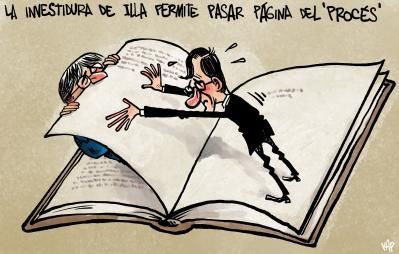 LA INVESTIDURA DE ILLA PERMITE PASAR PÁGINA DEL 'PROCÉS'
KAP